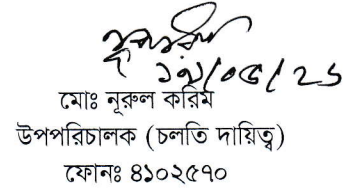 ১৯/০৫/২১
মোঃ নূরুল করিম
উপপরিচালক (চলতি দায়িত্ব)
ফোনঃ ৪১০২৫৭০